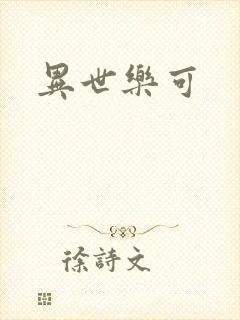 異世樂可
徐詩文